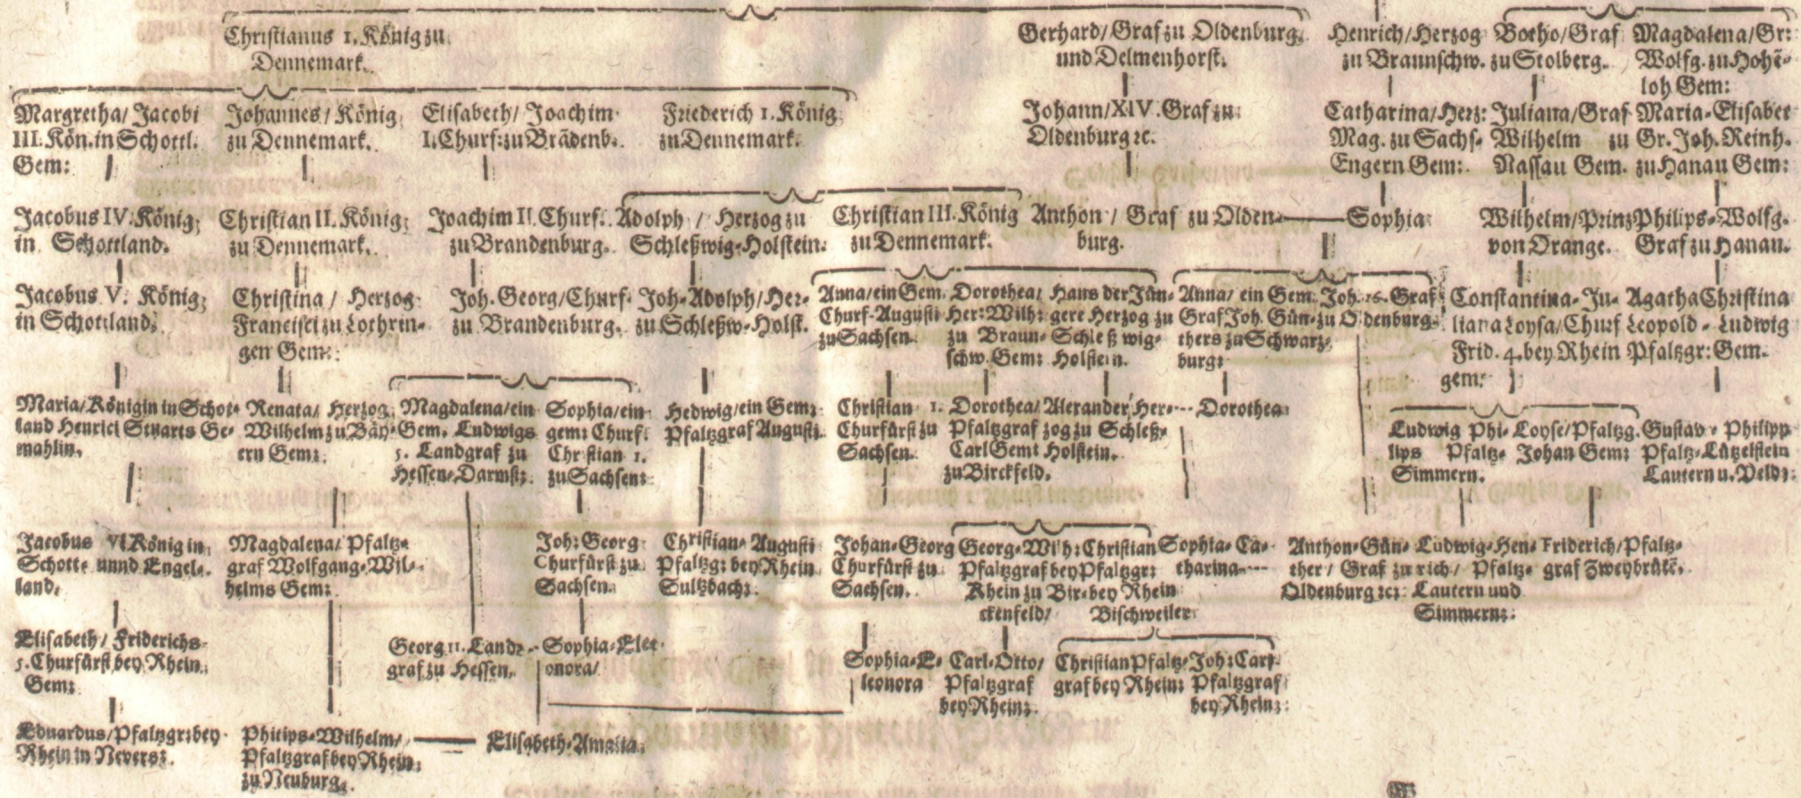 Christianus I. König zu
Dennemark.
Gerhard/ Graf zu Oldenburg
und Delmenhorst.
Henrich/ Herzog
zu Braunschw.
Botho/Graf
zu Stolberg.
Magdalena/Gr:
Wolfg. zu Hohē-
loh Gem:
Margretha/ Jacobi
III. Kön. in Schottl.
Gem:
Johannes/ König
zu Dennemark.
Elisabeth/ Joachim
I. Churf: zu Brādenb.
Friederich I. König
zu Dennemark.
Johann/XIV. Graf zu
Oldenburg ꝛc.
Catharina/Herz:
Mag. zu Sachs-
Engern Gem:
Juliana/Graf
Wilhelm zu
Nassau Gem.
Maria-Elisabet
Gr. Joh. Reinh.
zu Hanau Gem:
Jacobus IV. König
in Schottland.
Christian II. König
zu Dennemark.
Joachim II. Churf.
zu Brandenburg.
Adolph / Herzog zu
Schleßwig-Holstein.
Christian III. König
zu Dennemark.
Anthon / Graf zu Olden-
burg.
Sophia
Wilhelm/Prinz
von Orange.
Philips-Wolfg.
Graf zu Hanau.
Jacobus V. König
in Schottland.
Christina / Herzog
Francisci zu Lothrin-
gen Gem:
Joh. Georg/Churf.
zu Brandenburg.
Joh-Adolph/Her-
zu Schleßw-Holst.
Anna/ein Gem.
Churf-Augusti
zu Sachsen.
Dorothea/
Her: Wilh:
zu Braun-
schw. Gem:
Hans der Jün-
gere Herzog zu
Schleßwig-
Holstein.
Anna/ ein Gem.
Graf Joh. Gün-
thers zu Schwarz-
burg:
Joh. 16. Graf
zu Oldenburg.
Constantina-Ju-
liana Loysa/Churf
Frid. 4. bey Rhein
gem:
Agatha Christina
Leopold-Ludwig
Pfaltzgr: Gem.
Maria/Königin in Schot-
land Henrici Stuarts Ge-
mahlin.
Renata/ Herzog
Wilhelm zu Bäy-
ern Gem:
Magdalena/ein
Gem. Ludwigs
5. Landgraf zu
Hessen-Darmst:
Sophia/ein
gem: Churf.
Christian 1.
zu Sachsen:
Hedwig/ein Gem:
Pfaltzgraf Augusti.
Christian 1.
Churfürst zu
Sachsen.
Dorothea/
Pfaltzgraf
Carl Gem:
zu Birckfeld.
Alexander Her-
zog zu Schleß-
Holstein.
Dorothea
Ludwig Phi-
lips Pfaltz-
Simmern.
Loyse/Pfaltzg.
Johan Gem:
Gustav-Philipp
Pfaltz-Lützelstein
Lautern u. Veld:
Jacobus VI König in
Schott- unnd Engel-
land.
Magdalena/ Pfaltz-
graf Wolfgang-Wil-
helms Gem:
Joh: Georg
Churfürst zu
Sachsen.
Christian-Augusti
Pfaltzg: bey Rhein
Sultzbach:
Johan-Georg
Churfürst zu
Sachsen.
Georg-Wilh:
Pfaltzgraf bey
Rhein zu Bir-
ckenfeld/
Christian
Pfaltzgr:
bey Rhein
Bischweiler
Sophia-Ca-
tharina
Anthon-Gün-
ther/ Graf zu
Oldenburg ꝛc:
Ludwig-Hen-
rich/ Pfaltz-
Lautern und
Simmern:
Friderich/Pfaltz-
graf Zweybrüke.
Elisabeth/ Friderichs
5. Churfürst bey Rhein
Gem:
Georg II. Land-
graf zu Hessen.
Sophia-Ele-
onora/
Sophia-E-
leonora
Carl-Otto/
Pfaltzgraf
bey Rhein:
Christian Pfaltz-
graf bey Rhein:
Joh: Carl
Pfaltzgraf
bey Rhein:
Eduardus/Pfaltzgr: bey
Rhein in Nevers:
Philips-Wilhelm/
Pfaltzgraf bey Rhein
zu Neuburg.
Elisabeth-Amalia.